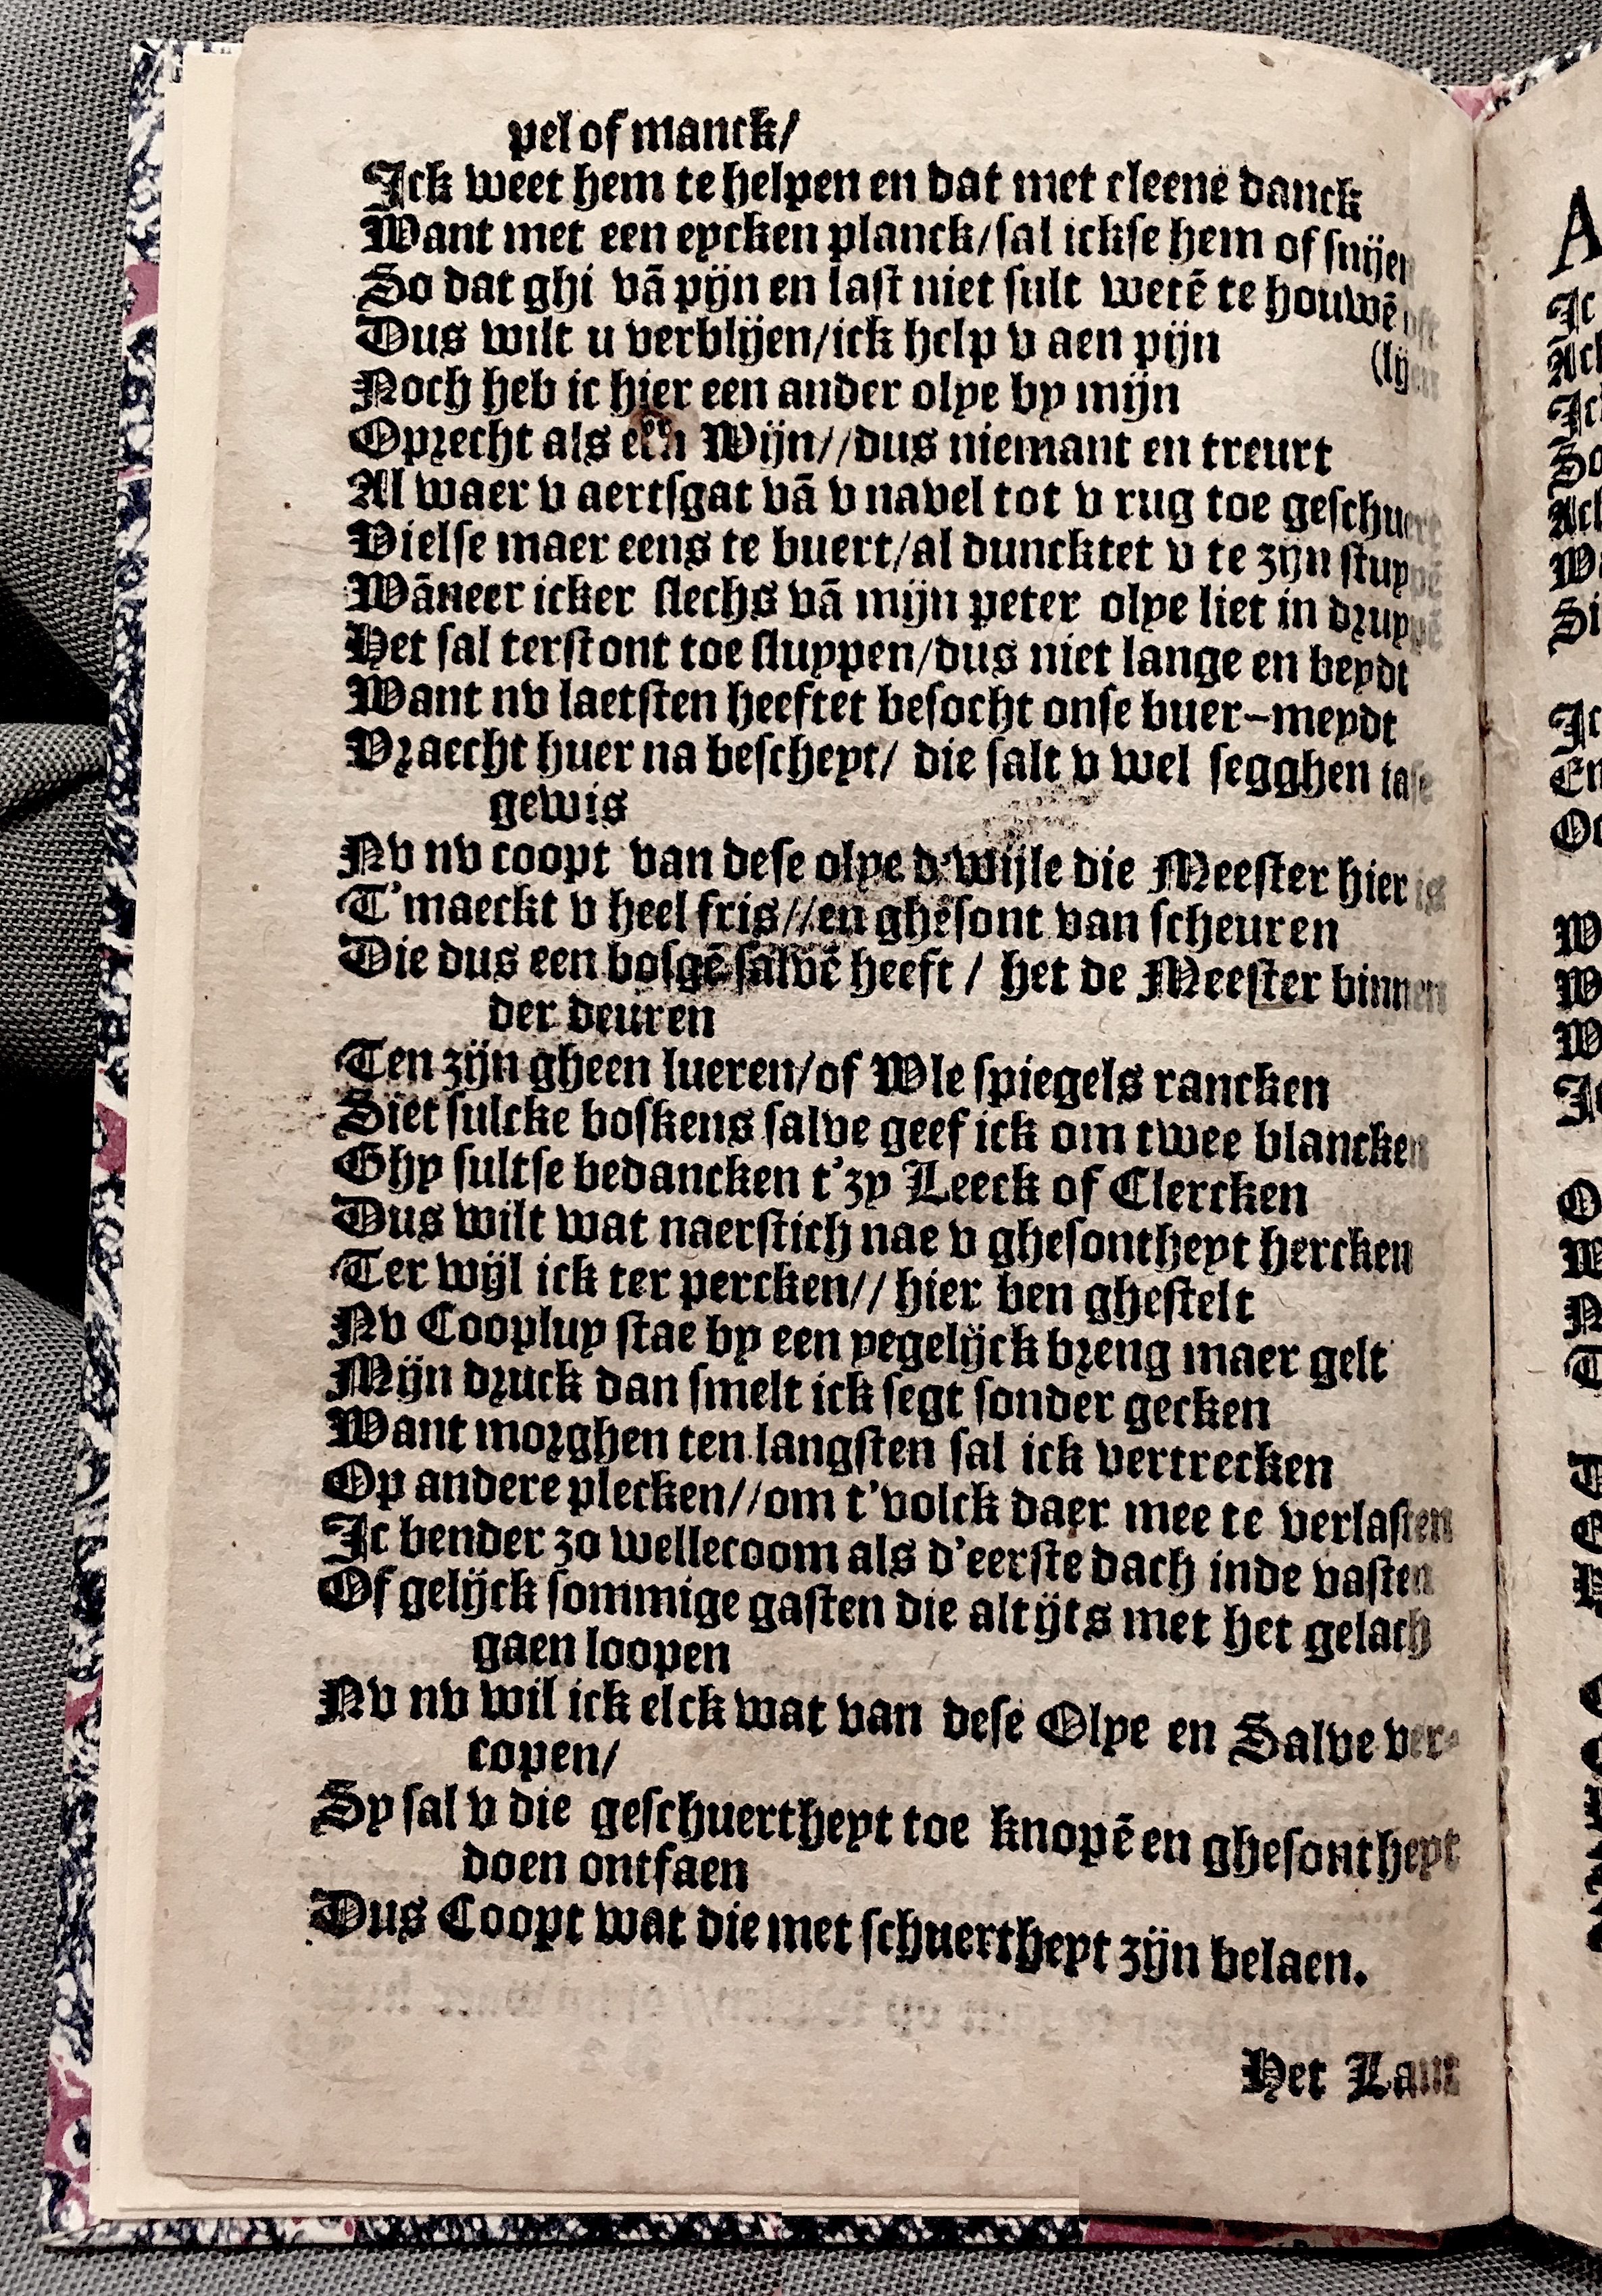 pel of manck/
Ick weet hem te helpen en dat met cleene danck
Want met een eycken planck/sal ickse hem of snijen
So dat ghi vā pijn en last niet sult wetē te houwē oft
Dus wilt u verblijen/ick help v aen pijn
(lijen
Noch heb ic hier een ander olye by mijn
Oprecht als een Wijn//dus niemant en treurt
Al waer v aertsgat vā v navel tot v rug toe geschuert
Vielse maer eens te buert/al duncktet v te zijn stuppē
Wāneer icker slechs vā mijn peter olye liet in druppē
Het sal terstont toe sluppen/dus niet lange en beydt
Want nv laetsten heeftet besocht onse buer-meydt
Vraecht huer na bescheyt/ die salt v wel segghen iase
gewis
Nv nv coopt van dese olye d'wijle die Meester hier is
T'maeckt v heel fris//en ghesont van scheuren
Die dus een bosgē salvē heeft / het de Meester binnen
der deuren
Ten zijn gheen lueren/of Wle spiegels rancken
Siet sulcke boskens salve geef ick om twee blancken
Ghy sultse bedancken t'zy Leeck of Clercken
Dus wilt wat naerstich nae v ghesontheyt hercken
Ter wijl ick ter percken// hier ben ghestelt
Nv Coopluy stae by een yegelijck breng maer gelt
Mijn druck dan smelt ick segt sonder gecken
Want morghen ten langsten sal ick vertrecken
Op andere plecken//om t'volck daer mee te verlasten
Ic bender zo wellecoom als d'eerste dach inde vasten
Of gelijck sommige gasten die altijts met het gelach
gaen loopen
Nv nv wil ick elck wat van dese Olye en Salve ver-
copen/
Sy sal v die geschuertheyt toe knopē en ghesontheyt
doen ontfaen
Dus Coopt wat die met schuertheyt zijn belaen.
Het Lant